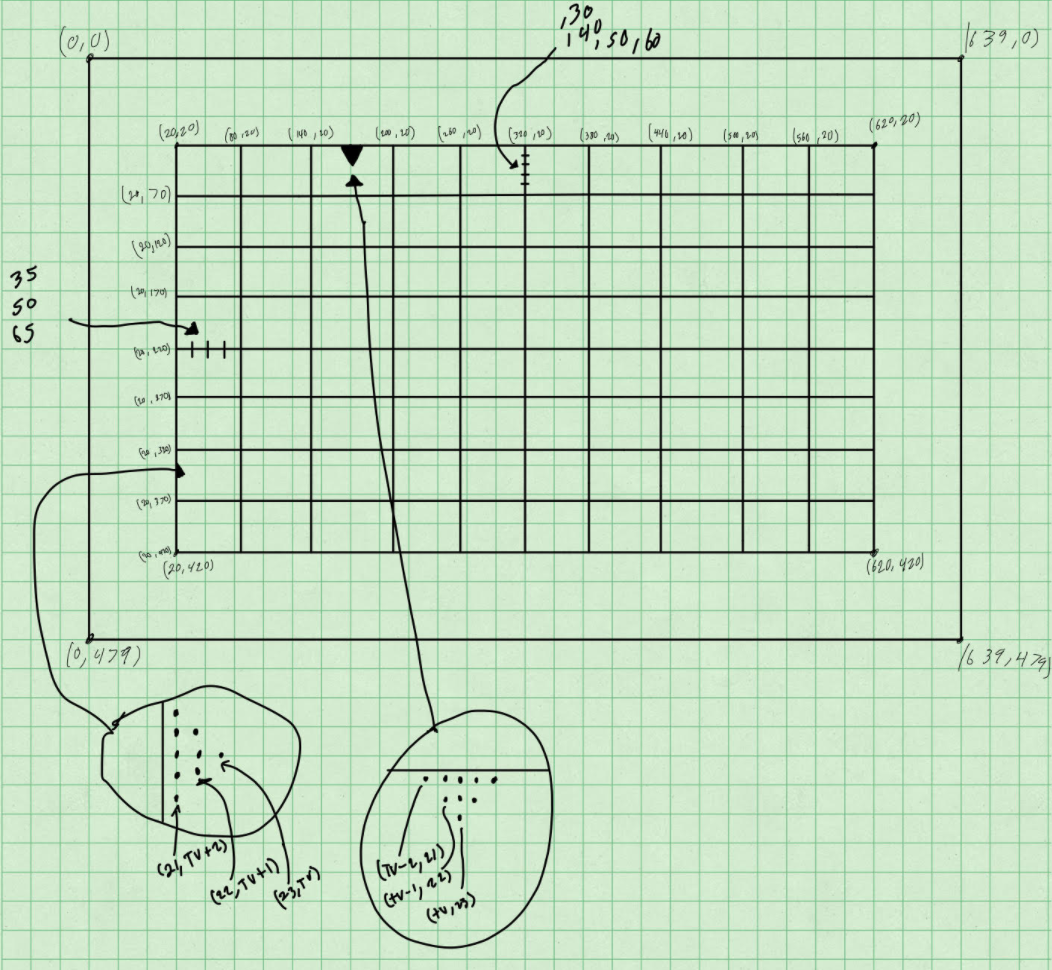 (0,0)
,30
,40,50,60
(639,0)
(20,20) (80,20) (140,20) (200,20) (260,20) (320,20) (380,20) (440,20) (500,20) (560,20) (620,20)
(20,70)
(20,120)
(20,170)
35
50
65
(20,220)
(20,270)
(20,320)
(20,370)
(20,420)
(20,420)
(620,420)
(0,479)
(639,479)
(21,TV+2)
(22,TV+1)
(23,TV)
(TV-2,21)
(tv-1,22)
(tv,23)